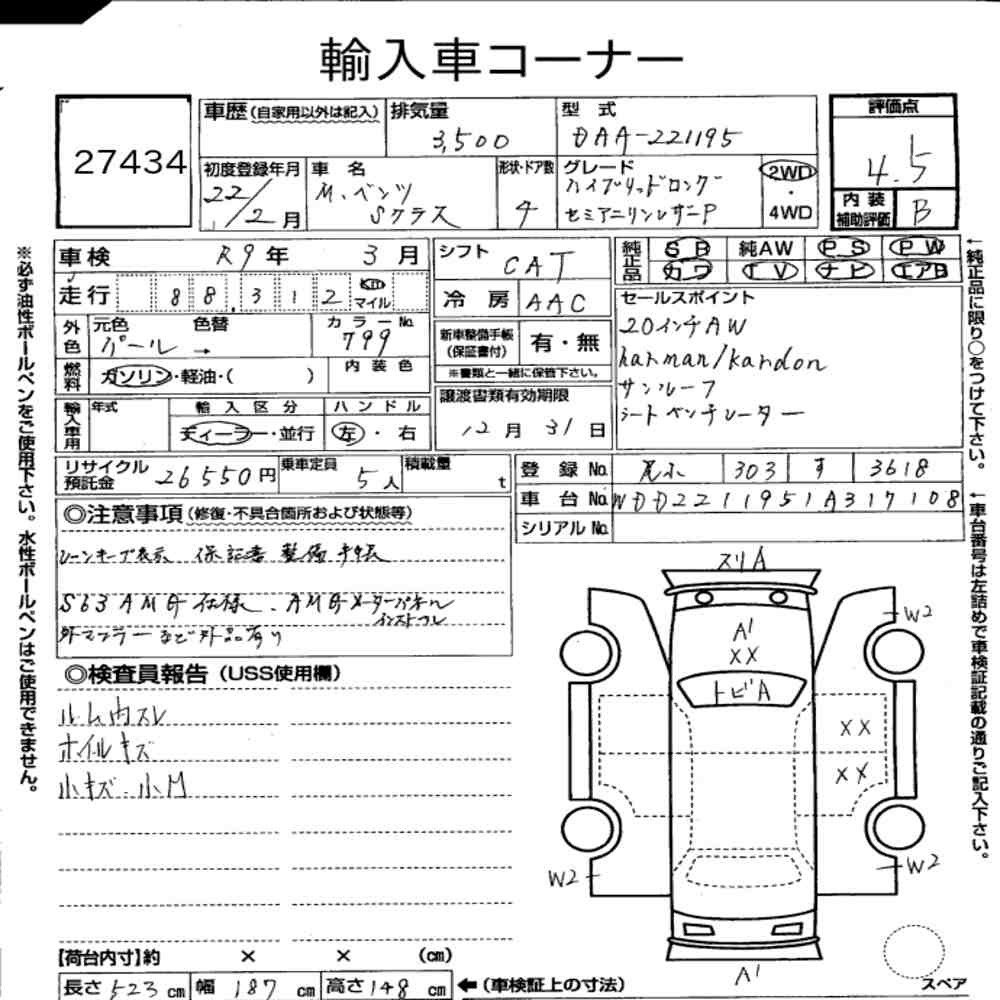 輸入車コーナー
27434
車歴(自家用以外は記入)
排気量
3,500
型 式
DAA-221195
評価点
4.5
初度登録年月
22/2月
車 名
M.ベンツ
Sクラス
形状・ドア数
4
グレード
ハイブリッドロング
セミアニリンレザーP
2WD
・
4WD
内 装
補助評価
B
車検 R9年 3月
走行 88,312 km マイル
シフト
CAT
冷 房
AAC
純正品
SR 純AW PS PW
カワ TV ナビ エアB
外色
元色 色替
パール →
カラーNo.
799
燃料
ガソリン・軽油・( )
内 装 色
新車整備手帳
(保証書付)
有・無
※書類と一緒に保管下さい。
セールスポイント
20インチAW
harman/kardon
サンルーフ
シートベンチレーター
輸入車用
年式
輸 入 区 分
ディーラー・並行
ハ ン ド ル
左・右
譲渡書類有効期限
12月31日
リサイクル
預託金
26550円
乗車定員
5人
積載量
t
登 録 No. 303 す 3618
車 台 No. WDD2211951A317108
シリアル No.
◎注意事項(修復・不具合箇所および状態等)
レーンキープ表示 保証書 整備手帳
S63 AMG仕様. AMGメーターパネル
インストール
外マフラーなど外品有り
◎検査員報告(USS使用欄)
ルーム内スレ
ホイルキズ
小キズ 小M
スリA
A1
XX
トビA
W2
XX
XX
W2
W2
A1
スペア
【荷台内寸】約 × × (cm)
長さ523cm 幅187cm 高さ148cm ←(車検証上の寸法)
※必ず油性ボールペンをご使用下さい。水性ボールペンはご使用できません。
←純正品に限り○をつけて下さい。
←車台番号は左詰めで車検証記載の通りご記入下さい。